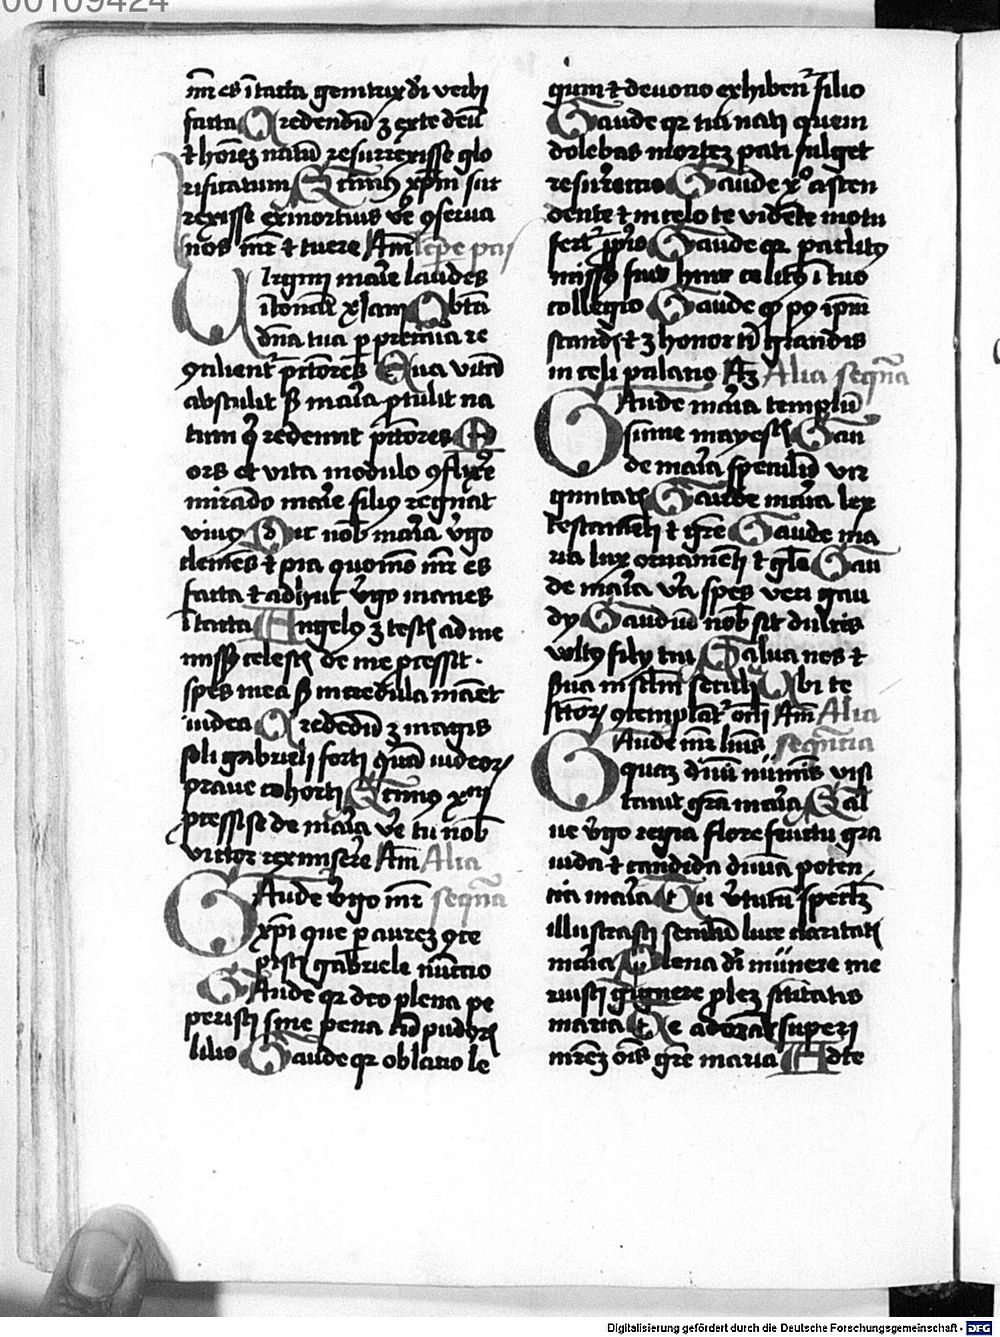 00109424
mr̄ es ītacta genitrix dī verbi
facta Credendū ʒ exte deū
⁊ hoīeʒ natū resurrexisse glo
rificatum Scimus xp̄m sur
rexisse ex mortuis ve ꝯserua
nos mr̄ ⁊ tuere Am̄
Virginj marīe laudes
ītonāt xp̄iani Obtā
dn̄a tua p premia re
ꝯsilient pctores Eua vitā
abstulit sʒ maria ptulit na
tum q̄ redemit pctores M
ors et vita modulo ꝯflixe
mirādo marie filiꝰ regnat
viuꝰ Dic nob maria v̄go
clemēs ⁊ pia quomō mr̄ es
facta ⁊ adhuc v̄go manes
ītacta Angelꝰ ʒ testis ad me
missꝰ celestis de me p̄cessit
spes mea sʒ incredula manet
iudea Crededū ʒ magis
soli gabrieli forti quā iudeorꝝ
praue cohorti Scimus xp̄m
p̄cessisse de maria ve tu nob
victor rex miserē Am̄ Alia
Gaude v̄go mr̄ seqn̄a
xpi que p aureʒ ꝯce
pisti gabriele nūctio
Gaude qr deo plena pe
peristi sine pena cū pudoris
lilio Gaude qr oblatio re
gum ⁊ deuotio exhibet filio
Gaude qr tui nati quem
dolebas morteʒ pati fulget
resurrectio Gaude xo ascen
dente ⁊ in celo te vidēte motu
fert ip̄ius Gaude qr paclitꝰ
missꝰ fuit hinc celitꝰ ī tuo
collegio Gaude
scandis ⁊ ʒ honor tī grandis
in celi palatio Am̄ Alia seqn̄a
Gaude maria templū
sūme mayestatis Gau
de maria speculū vir
ginitatis Gaude maria lex
testamēti ⁊ gr̄e Gaude ma
ria lux ornamēti ⁊ gl̄e Gau
de maria vīa spes veri gau
dy Gaudiū nob sit dulcis
vultꝰ filij tui Salua nos ⁊
sua in sclm̄ seculi Ubi te
sctorꝝ ꝯtemplat oc̄li Am̄ Alia
Gaude mr̄ lūīs seqn̄tia
quaʒ diuī nūmīs visi
tauit gr̄a maria Sal
ue v̄go regia flore fructu gra
uida ⁊ candida diuīa poten
cia maria Tu v̄tutū speclm̄
illustrasti secundū luce claritatis
maria Plena dī mūnere me
ruisti gignere pleʒ scītatis
maria Te adorāt superi
mr̄eʒ oīs gr̄e maria Ad te
Digitalisierung gefördert durch die Deutsche Forschungsgemeinschaft - DFG